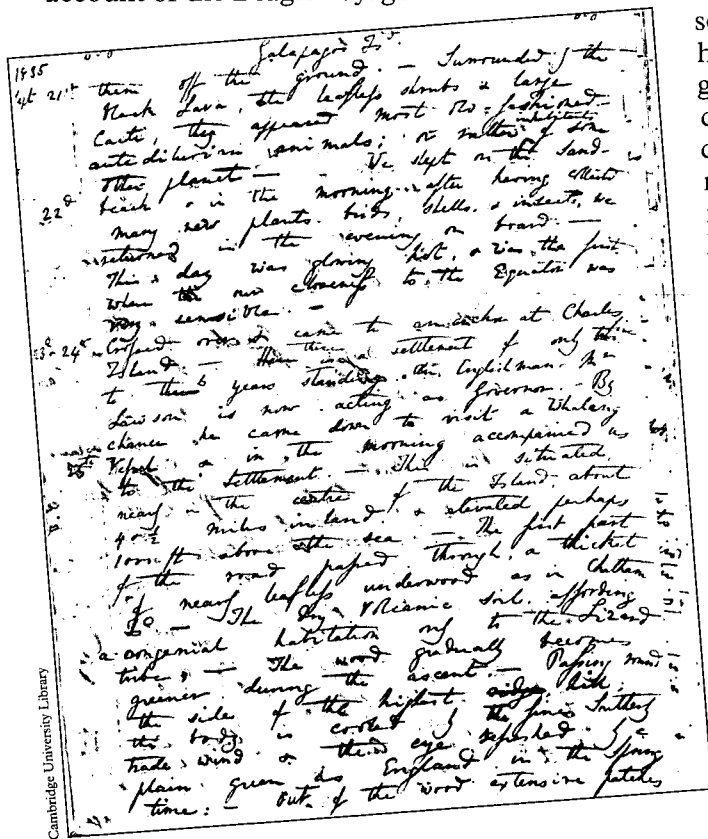 account of the Beagle voyag
1835
Galapagos Is.
Sept 21st them off the ground. — Surrounded by the
black Lava, the leafless shrubs & large
Cacti, they appeared most old-fashioned
antediluvian animals; or rather inhabitants of some
other planet. —
We slept on the sand-
22d beach & in the morning after having collected
many new plants, birds, shells & insects, we
returned in the evening on board: —
This day was glowing hot, & was the first
when our closeness to the Equator was
very sensible. —
24th over & came to an anchor at Charles
Island. — Here there is a settlement of only
to years standing. An Englishman Mr
Lawson is now acting as Governor. By
chance he came down to visit a Whaling
25th Vessel & in the morning accompanied us
to the Settlement. — This is situated
nearly in the centre of the Island, about
4 & ½ miles inland, & elevated perhaps
1000 ft above the sea. — The first part
of the road passed through a thicket
of nearly leafless underwood as in Chatham
Isd — The dry Volcanic soil affording
a congenial habitation only to the Lizard
tribe. — The wood gradually becomes
greener during the ascent. — Passing round
the side of the highest hill
the body is cooled by the fine Southerly
trade wind & the eye refreshed by a
plain green as England in the Spring
time: — Out of the wood extensive patches
Cambridge University Library